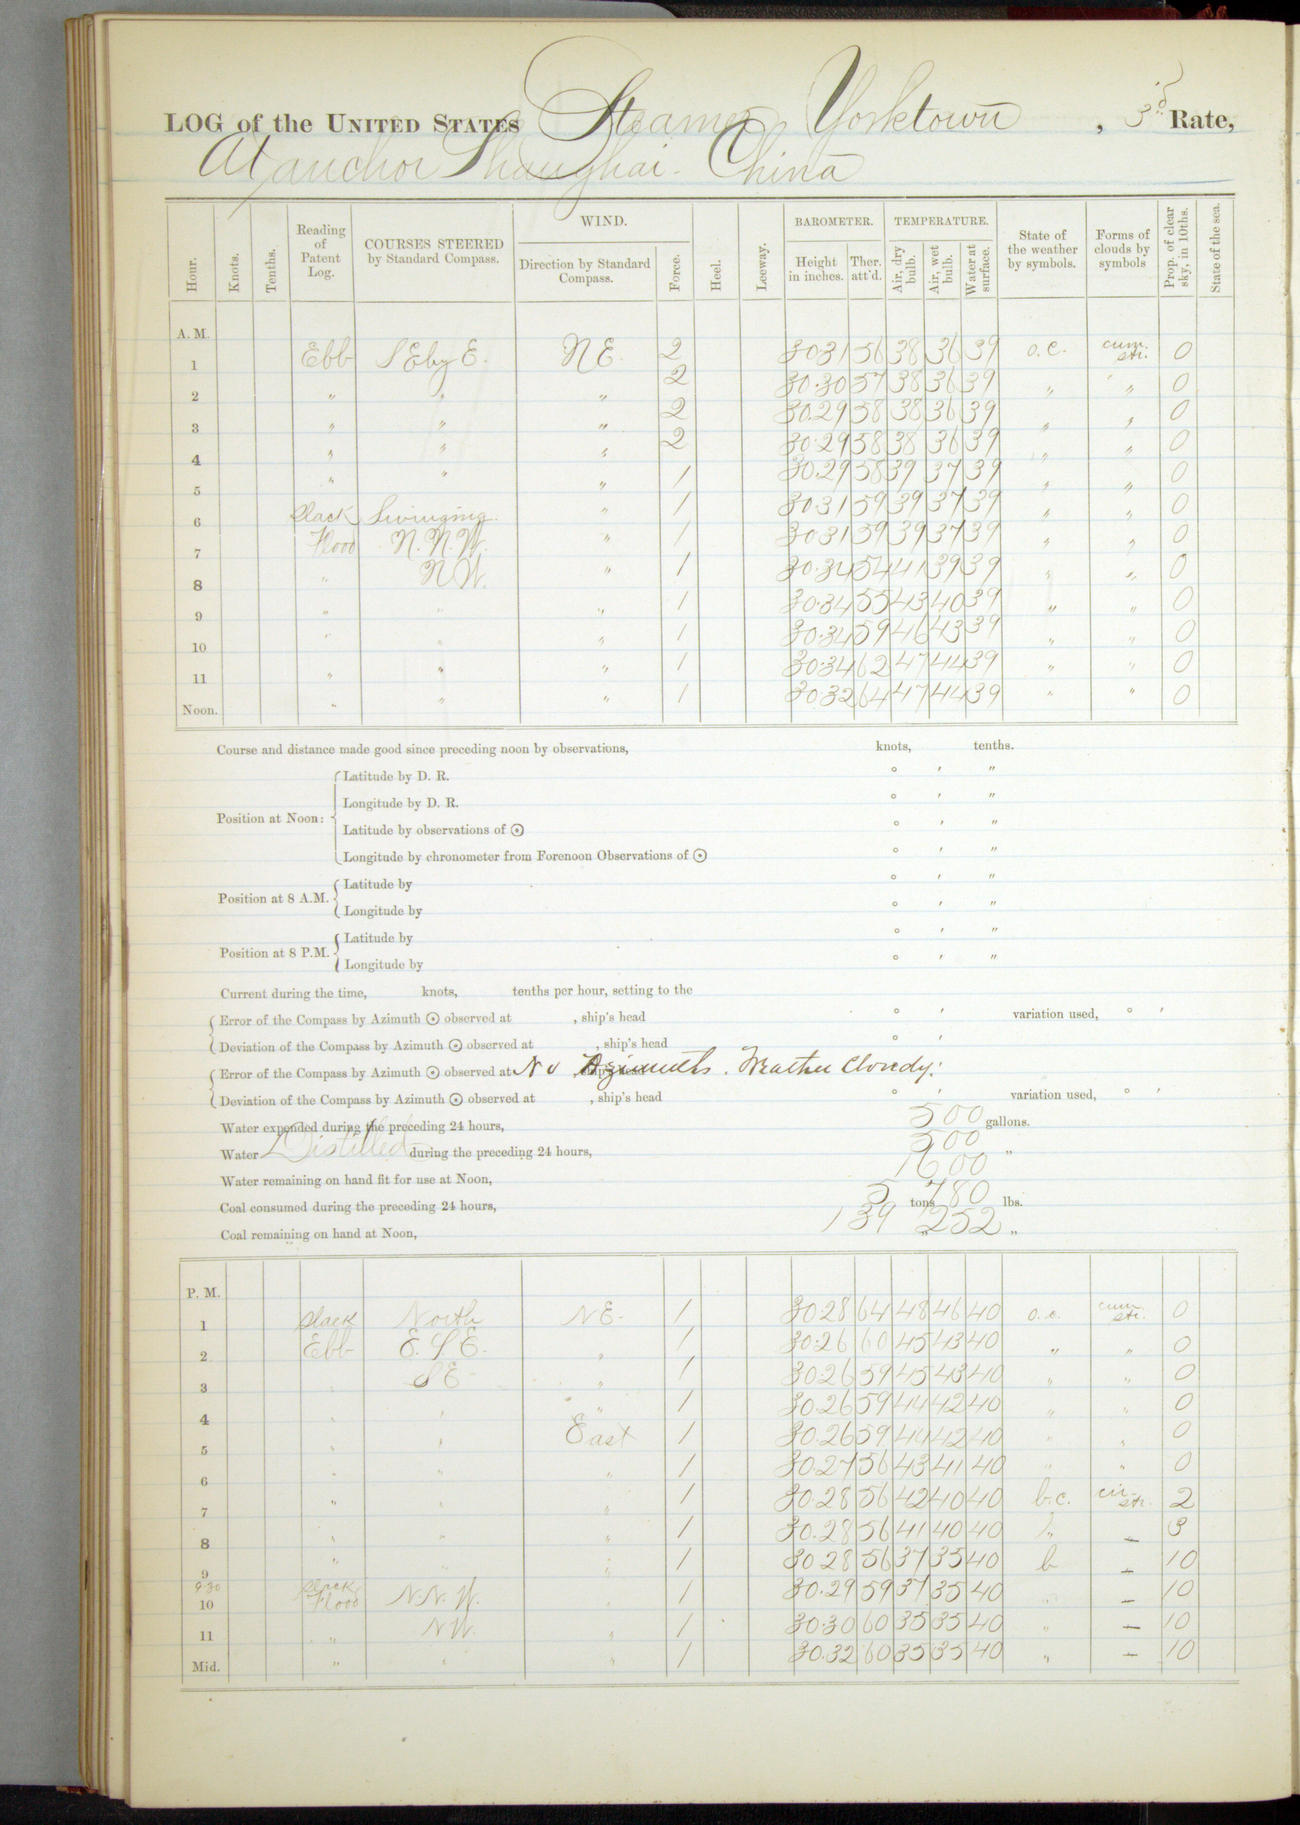 LOG of the UNITED STATES Steamer Yorktown, 3d Rate,
At anchor Shanghai. China
Hour. Knots. Tenths. Reading of Patent Log. COURSES STEERED by Standard Compass. WIND. Direction by Standard Compass. Force. Heel. Leeway. BAROMETER. Height in inches. Ther. att'd. TEMPERATURE. Air, dry bulb. Air, wet bulb. Water at surface. State of the weather by symbols. Forms of clouds by symbols Prop. of clear sky, in 10ths. State of the sea.
A. M.
1 Ebb SE by E. NE. 2 30.31 56 38 36 39 o.c. cum. str. 0
2 " " " 2 30.30 57 38 36 39 " " 0
3 " " " 2 30.29 58 38 36 39 " " 0
4 " " " 2 30.29 58 38 36 39 " " 0
5 " " " 1 30.29 58 39 37 39 " " 0
6 Slack Swinging. " 1 30.31 59 39 37 39 " " 0
7 Flood N.N.W. " 1 30.31 59 39 37 39 " " 0
8 " NW. " 1 30.34 54 41 39 39 " " 0
9 " " " 1 30.34 55 43 40 39 " " 0
10 " " " 1 30.34 59 46 43 39 " " 0
11 " " " 1 30.34 62 47 44 39 " " 0
Noon. " " " 1 30.32 64 47 44 39 " " 0
Course and distance made good since preceding noon by observations, knots, tenths.
Position at Noon: Latitude by D. R. ° ′ ″
Longitude by D. R. ° ′ ″
Latitude by observations of ☉ ° ′ ″
Longitude by chronometer from Forenoon Observations of ☉ ° ′ ″
Position at 8 A.M. Latitude by ° ′ ″
Longitude by ° ′ ″
Position at 8 P.M. Latitude by ° ′ ″
Longitude by ° ′ ″
Current during the time, knots, tenths per hour, setting to the
Error of the Compass by Azimuth ☉ observed at , ship's head ° ′ variation used, ° ′
Deviation of the Compass by Azimuth ☉ observed at , ship's head ° ′
Error of the Compass by Azimuth ☉ observed at , ship's head No Azimuths. Weather Cloudy.
Deviation of the Compass by Azimuth ☉ observed at , ship's head ° ′ variation used, ° ′
Water expended during the preceding 24 hours, 500 gallons.
Water Distilled during the preceding 24 hours, 500 "
Water remaining on hand fit for use at Noon, 1600
Coal consumed during the preceding 24 hours, 5 tons 780 lbs.
Coal remaining on hand at Noon, 139 " 252 "
P. M.
1 Slack North NE. 1 30.28 64 48 46 40 o.c. cum. str. 0
2 Ebb E.SE. " 1 30.26 60 45 43 40 " " 0
3 " SE " 1 30.26 59 45 43 40 " " 0
4 " " " 1 30.26 59 44 42 40 " " 0
5 " " East 1 30.26 59 44 42 40 " " 0
6 " " " 1 30.27 56 43 41 40 " " 0
7 " " " 1 30.28 56 42 40 40 b.c. cir. str. 2
8 " " " 1 30.28 56 41 40 40 " — 3
9 " " " 1 30.28 56 37 35 40 b — 10
9.30 Slack
10 Flood N.N.W. " 1 30.29 59 37 35 40 " — 10
11 " NW. " 1 30.30 60 35 35 40 " — 10
Mid. " " " 1 30.32 60 35 35 40 " — 10